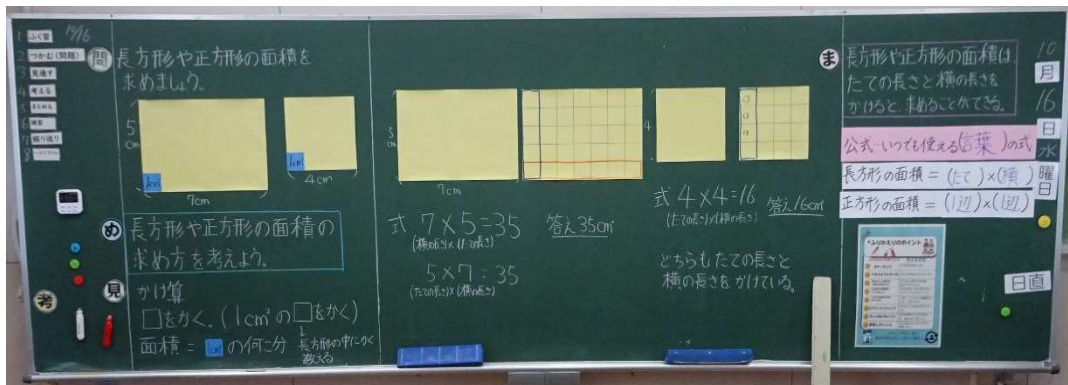 10/16
1 ふく習
2 つかむ(問題)
3 見通す
4 考える
5 まとめる
6 練習
7 振り返り
8
問
長方形や正方形の面積を
求めましょう。
5
cm
1cm²
7cm
1cm²
4cm
め
長方形や正方形の面積の
求め方を考えよう。
考
見
かけ算
□をかく。(1cm²の□をかく)
↓
長方形の中にかく
数える
面積 = 1cm² の何こ分
5
cm
7cm
式 7×5=35
(横の長さ)×(たての長さ)
答え35cm²
5×7=35
(たての長さ)×(横の長さ)
4
式 4×4=16
(たての長さ)×(横の長さ)
答え16cm²
どちらもたての長さと
横の長さをかけている。
ま
長方形や正方形の面積は、
たての長さと横の長さを
かけると、求めることができる。
公式…いつでも使える(言葉)の式
長方形の面積 = (たて)×(横)
正方形の面積 = (1辺)×(1辺)
ふりかえりのポイント
10
月
16
日
水
曜
日
日直